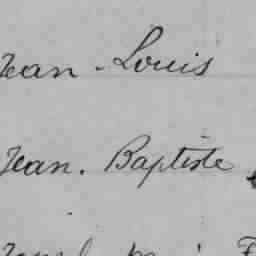 Jean - Louis
Jean. Baptiste